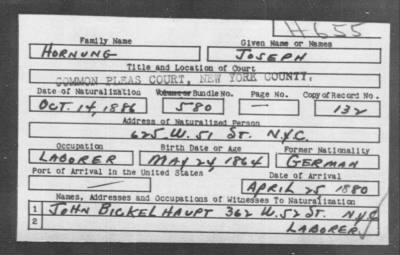 H-655
Family Name Given Name or Names
HORNUNG JOSEPH
Title and Location of Court
COMMON PLEAS COURT, NEW YORK COUNTY.
Date of Naturalization Volume or Bundle No. Page No. Copy of Record No.
OCT. 14, 1886 580 — 132
Address of Naturalized Person
625 W. 51 ST. N.Y.C.
Occupation Birth Date or Age Former Nationality
LABORER MAY 24, 1864 GERMAN
Port of Arrival in the United States Date of Arrival
— APRIL 25 1880
Names, Addresses and Occupations of Witnesses To Naturalization
1 JOHN BICKELHAUPT 362 W. 52 ST. N.Y.C
2 LABORER